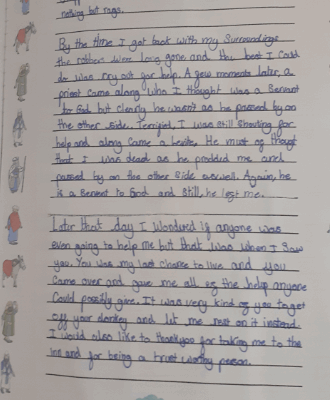 nothing but rags.
By the time I got back with my Surroundings
the robbers were long gone and the best I Could
do was cry out for help. A few moments later, a
priest came along who I thought was a Servant
to God but clearly he wasn't as he passed by on
the other side. Terrified, I was still Shouting for
help and along came a Levite. He must of thought
that I was dead as he prodded me and
passed by on the other Side aswell. Again, he
is a Servent to God and Still, he left me.
Later that day I Wondured if anyone was
even going to help me but that was when I Saw
you. You was my last chance to live and you
Came over and gave me all of the help anyone
Could possibly give. It was very kind of you to get
off your donkey and let me rest on it instead.
I would also like to thankyou for taking me to the
inn and for being a trust worthy person.